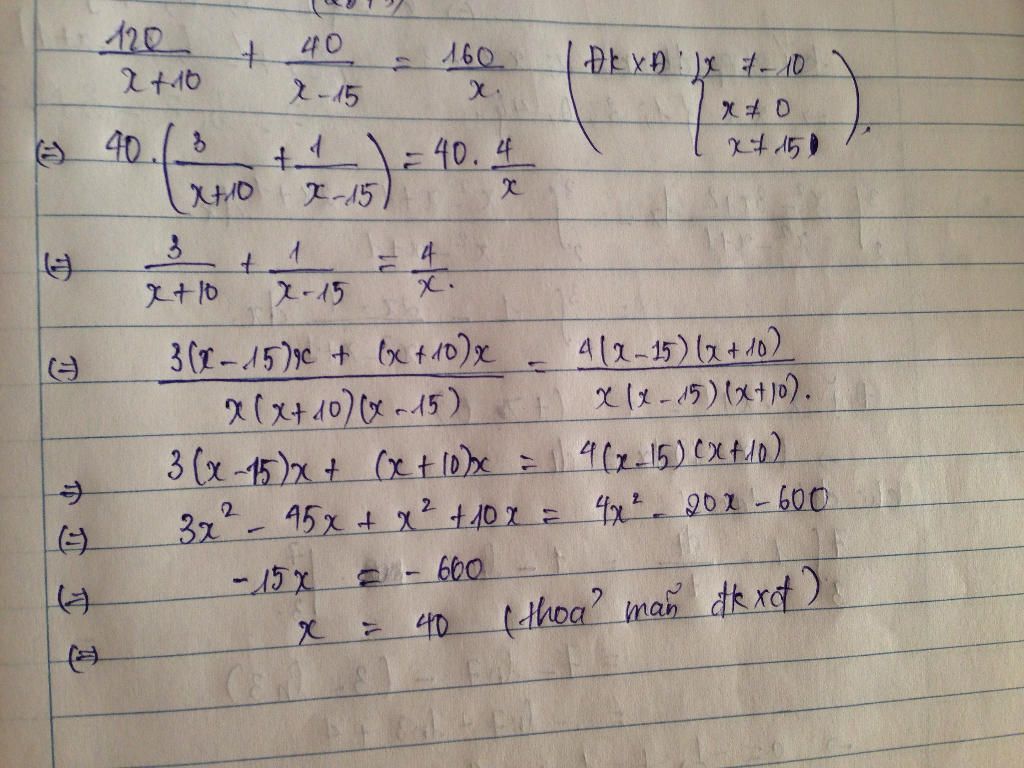 120/(x+10) + 40/(x-15) = 160/x. (ĐKXĐ: { x ≠ -10
x ≠ 0
x ≠ 15).
(=) 40.(3/(x+10) + 1/(x-15)) = 40. 4/x
(=) 3/(x+10) + 1/(x-15) = 4/x.
(=) (3(x-15)x + (x+10)x)/(x(x+10)(x-15)) = (4(x-15)(x+10))/(x(x-15)(x+10)).
=) 3(x-15)x + (x+10)x = 4(x-15)(x+10)
(=) 3x² - 45x + x² + 10x = 4x² - 20x - 600
(=) -15x = -600
(=) x = 40 (thoả mãn đkxđ)